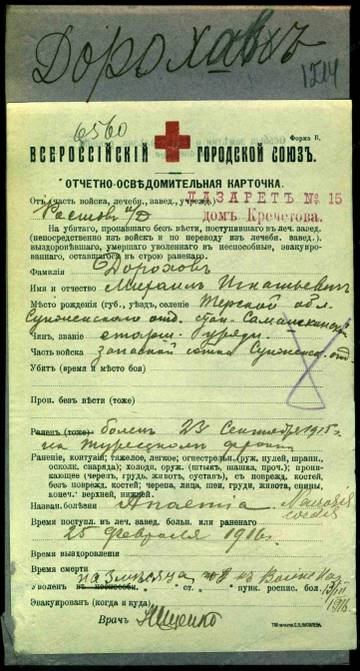 Дороховъ
1214
6560
Форма В.
ВСЕРОССІЙСКІЙ ГОРОДСКОЙ СОЮЗЪ.
ОТЧЕТНО-ОСВѢДОМИТЕЛЬНАЯ КАРТОЧКА.
Отъ (часть войска, лечебн. завед., учрежд.) ЛАЗАРЕТЪ № 15
Ростовъ н/Д домъ Кречетова.
На убитаго, пропавшаго безъ вѣсти, поступившаго въ леч. завед.
(непосредственно изъ войскъ и по переводу изъ лечебн. завед.).
выздоровѣвшаго, умершаго уволеннаго въ неспособные, эвакуирован-
наго, оставшагося въ строю раненаго.
Фамилія Дороховъ
Имя и отчество Михаилъ Игнатьевичъ
Мѣсто рожденія (губ., уѣздъ, селеніе Терской обл.
Сунженскаго отд. стан.
Чинъ, званіе старш. Уряди.
Часть войска запасной сотни Сунженск. отд.
Убитъ (время и мѣсто боя)
Проп. безъ вѣсти (тоже)
Раненъ (тоже) боленъ 23 Сентября 1915 г.
на Турецкомъ фронтѣ
Раненіе, контузія; тяжелое, легкое; огнестрѣльн. (руж. пулей, шрапн.,
осколк. снаряда); холодн. оруж. (штыкъ, шашка, проч.); прони-
кающее (черепъ, грудь, животъ, суставъ), съ поврежд. костей,
безъ поврежд. костей; черепа, лица, шеи, груди, живота, спины,
конеч. верхней, нижней.
Назван. болѣзни
Время поступл. въ леч. завед. больн. или раненаго
25 Февраля 1916 г.
Время выздоровленія
Время смерти
Уволен въ неспособн. ст. пунк. роспис. бол.
1916
Эвакуированъ (когда и куда)
Врачъ Ищенко